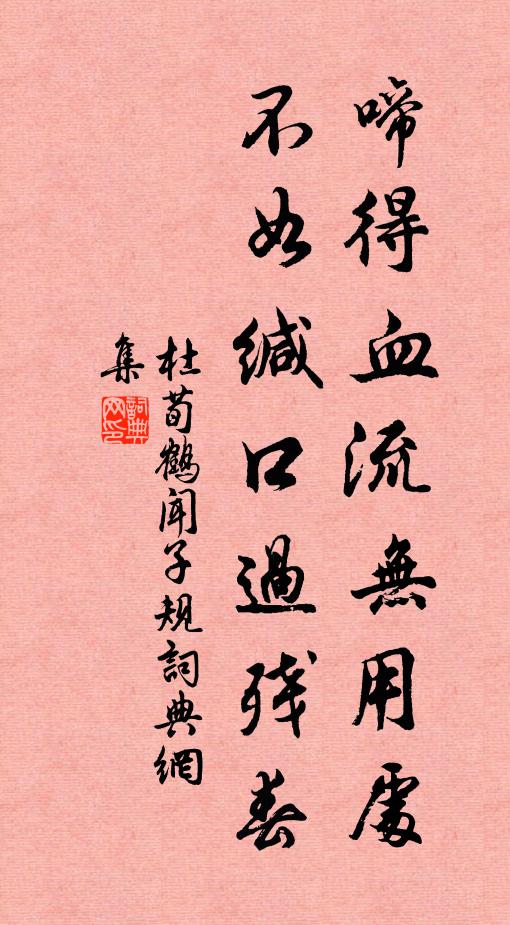 啼得血流無用處
不如緘口過殘春
杜荀鶴聞子規詞典網
集
詞典網印